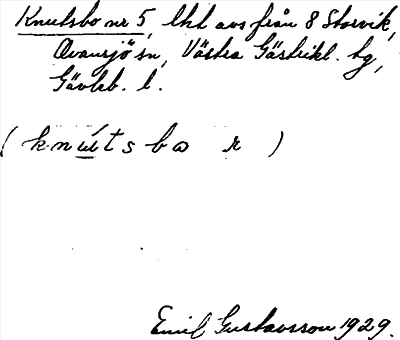 Knutsbo nr 5, lht avs från 8 Storvik,
Ovansjö sn, Västra Gästrikl. hg,
Gävleb. l.
(knútsbo r)
Emil Gustavsson 1929.